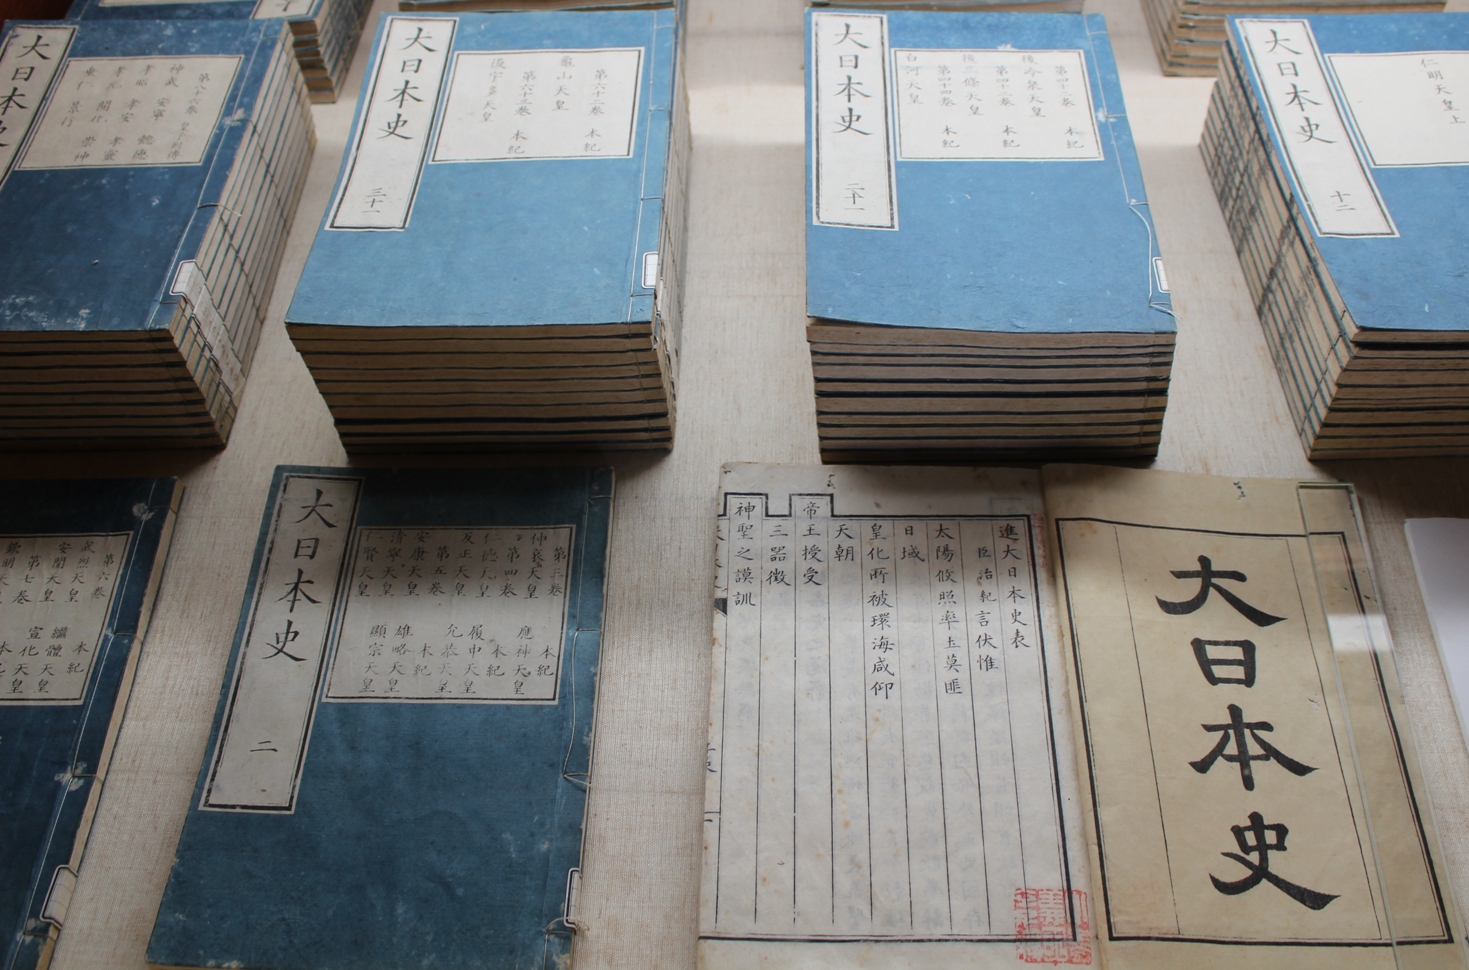 大日本史
第六十二卷 本紀
龜山天皇
第六十三卷 本紀
後宇多天皇
三十一
大日本史
第四十二卷 本紀
後冷泉天皇
第四十三卷 本紀
後三條天皇
第四十四卷 本紀
白河天皇
二十一
大日本史
仁明天皇上
十二
大日本史
神武 安寧 懿德
孝昭 孝安 孝靈
孝元 開化 崇神
景行
大日本史
第三卷 本紀
仲哀天皇 應神天皇
第四卷 本紀
仁德天皇 履中天皇
反正天皇 允恭天皇
第五卷 本紀
安康天皇 雄略天皇
清寧天皇 顯宗天皇
仁賢天皇
二
第六卷 本紀
武烈天皇 繼體天皇
安閑天皇 宣化天皇
第七卷 本紀
欽明天皇
進大日本史表
臣治紀言伏惟
太陽攸照率土莫匪
日域
皇化所被環海咸仰
天朝
帝王授受
三器徵
神聖之謨訓
大日本史